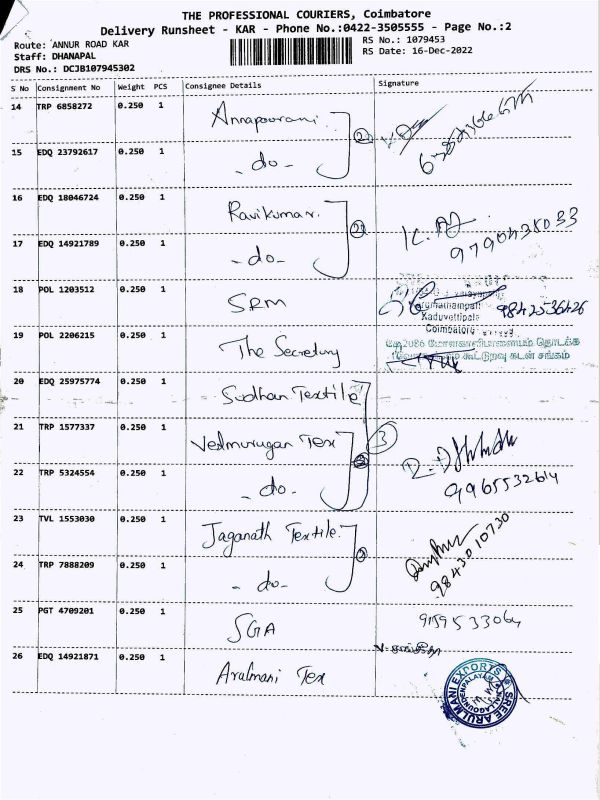 THE PROFESSIONAL COURIERS, Coimbatore
Delivery Runsheet - KAR - Phone No.:0422-3505555 - Page No.:2
Route: ANNUR ROAD KAR RS No.: 1079453
Staff: DHANAPAL RS Date: 16-Dec-2022
DRS No.: DCJB107945302
S No Consignment No Weight PCS Consignee Details Signature
14 TRP 6858272 0.250 1 Annapoorani
15 EDQ 23792617 0.250 1 - do -
16 EDQ 18046724 0.250 1 Ravikumar.
17 EDQ 14921789 0.250 1 - do -
18 POL 1203512 0.250 1 SRM 9842536426
Kaduvettipalayam
Coimbatore
19 POL 2206215 0.250 1 The Secretary
கூட்டுறவு கடன் சங்கம்
20 EDQ 25975774 0.250 1 Sudhan Textile
21 TRP 1577337 0.250 1 Velmurugan Tex 3
22 TRP 5324554 0.250 1 - do -
23 TVL 1553030 0.250 1 Jaganath Textile. 9843010730
24 TRP 7888209 0.250 1 - do -
25 PGT 4709201 0.250 1 SGA
26 EDQ 14921871 0.250 1 Aralmani Tex
SREE ARULMANI EXPORTS